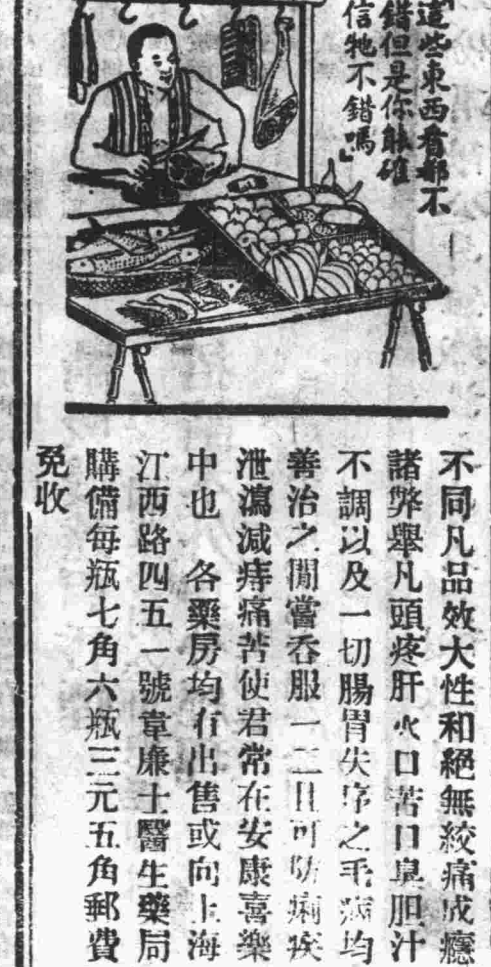 「這些東西看都不
錯但是你能確
信牠不錯嗎」
不同凡品效大性和絕無絞痛成癮
諸弊舉凡頭疼肝火口苦口臭胆汁
不調以及一切腸胃失序之毛病均
善治之閒嘗吞服一二且可防痢疾
泄瀉減痔痛苦使君常在安康喜樂
中也　各藥房均有出售或向上海
江西路四五一號韋廉士醫生藥局
購備每瓶七角六瓶三元五角郵費
免收